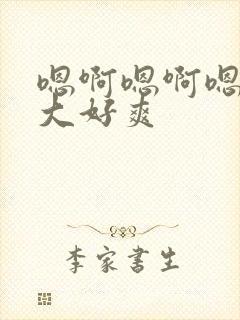 嗯啊嗯啊嗯
大好爽
李家书生